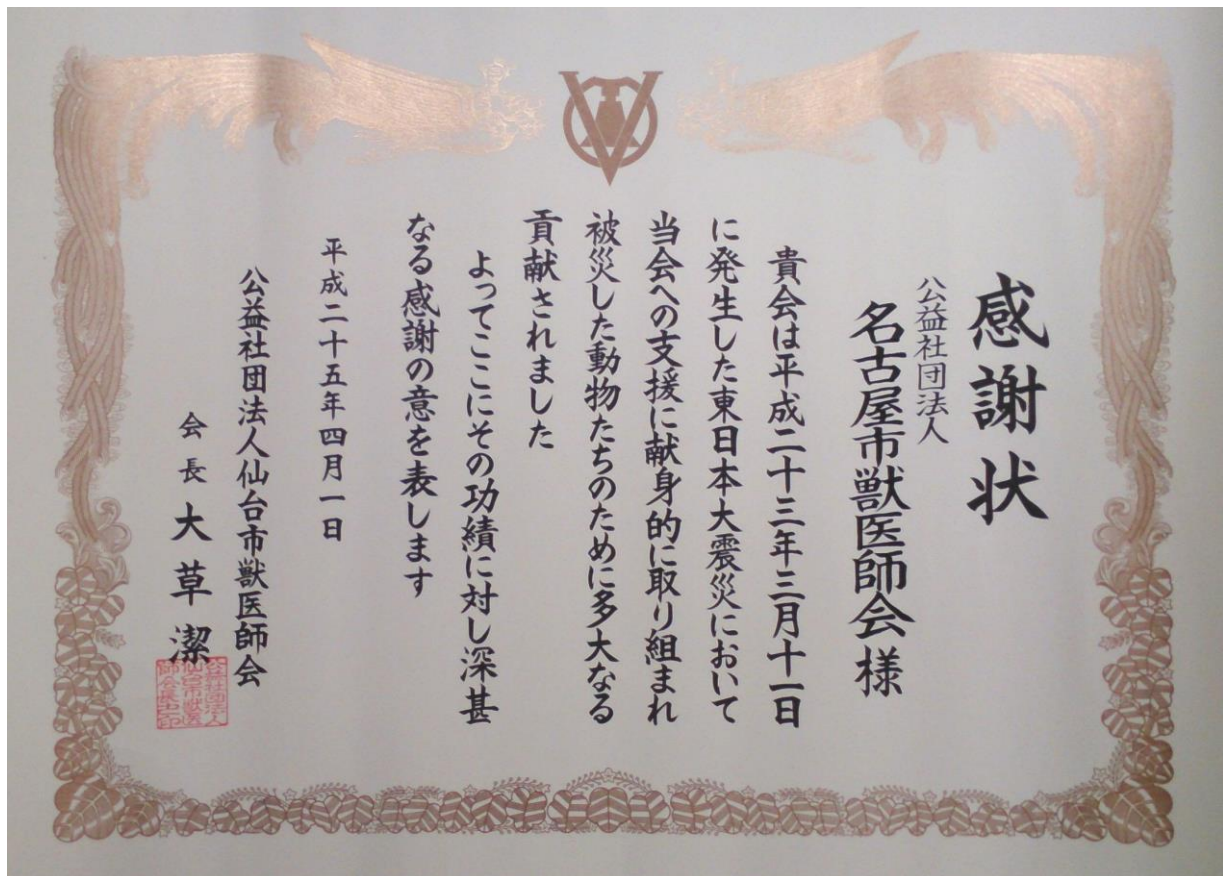 感謝状
公益社団法人
名古屋市獣医師会様
貴会は平成二十三年三月十一日
に発生した東日本大震災において
当会への支援に献身的に取り組まれ
被災した動物たちのために多大なる
貢献されました
よってここにその功績に対し深甚
なる感謝の意を表します
平成二十五年四月一日
公益社団法人仙台市獣医師会
会長大草潔
公益社団法人
仙台市獣医
師会長之印